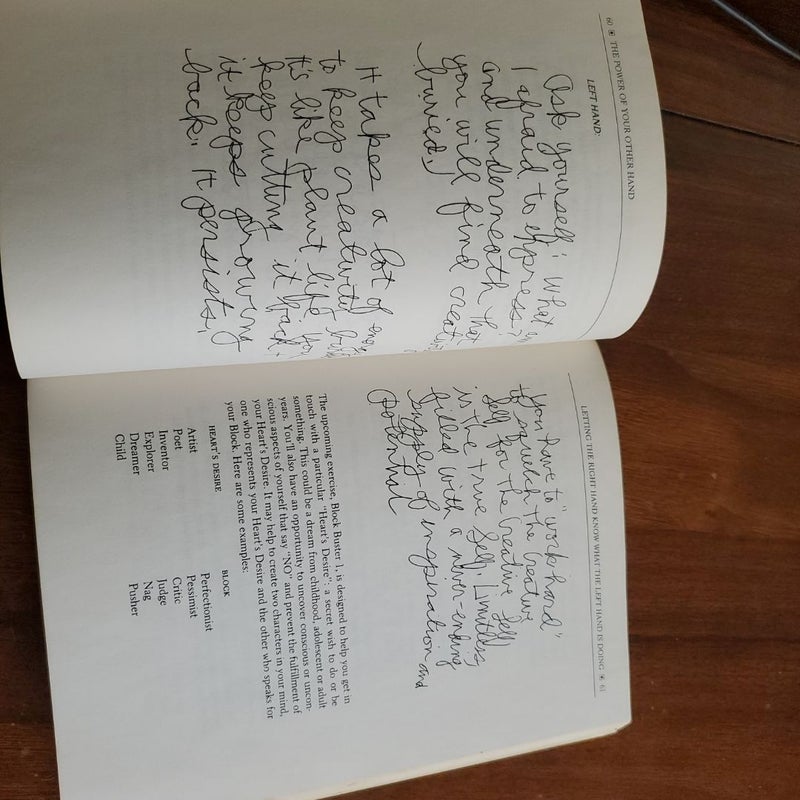 60 ❀ THE POWER OF YOUR OTHER HAND
LEFT HAND:
Ask yourself: What am
I afraid to express?
and underneath that
you will find creativity
buried.
It takes a lot of energy
to keep creativity buried
It's like plant life you
keep cutting it back &
it keeps growing
back. It persists.
LETTING THE RIGHT HAND KNOW WHAT THE LEFT HAND IS DOING ❀ 61
You have to "work hard"
to squelch the Creative
Self for the Creative Self
is the true Self. Limitless,
filled with a never-ending
supply of inspiration and
potential
The upcoming exercise, Block Buster 1, is designed to help you get in
touch with a particular "Heart's Desire": a secret wish to do or be
something. This could be a dream from childhood, adolescent or adult
years. You'll also have an opportunity to uncover conscious or uncon-
scious aspects of yourself that say "NO" and prevent the fulfillment of
your Heart's Desire. It may help to create two characters in your mind,
one who represents your Heart's Desire and the other who speaks for
your Block. Here are some examples:
HEART'S DESIRE BLOCK
Artist Perfectionist
Poet Pessimist
Inventor Critic
Explorer Judge
Dreamer Nag
Child Pusher